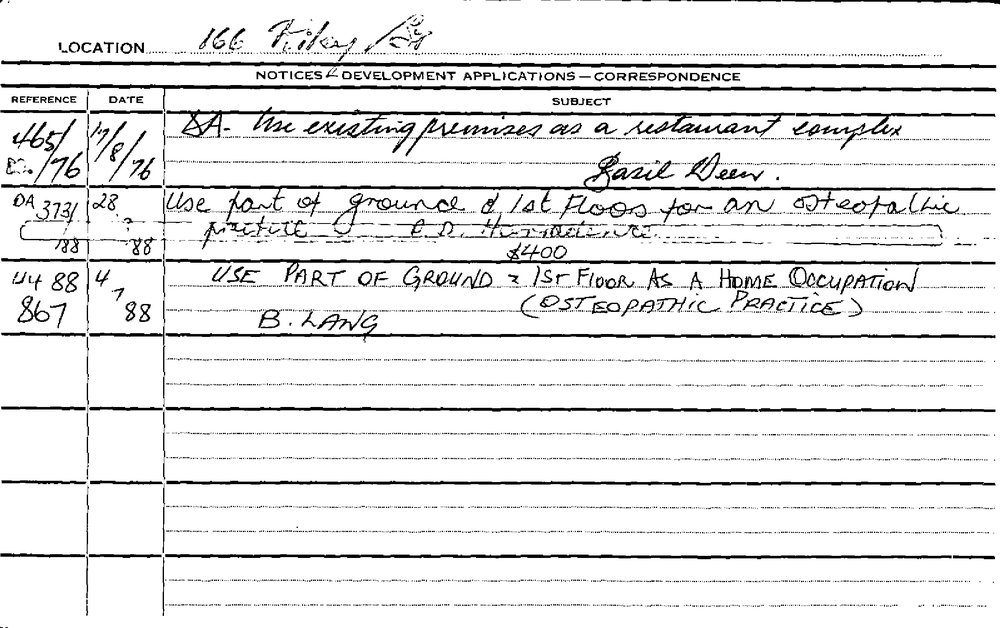 LOCATION 166 Riley St
NOTICES - DEVELOPMENT APPLICATIONS — CORRESPONDENCE
REFERENCE DATE SUBJECT
465/ 17/8/76 DA. Use existing premises as a restaurant complex
/76 Basil
DA 373/ 28 Use part of ground & 1st Floors for an osteopathic
practice
188 88 $400
U4 88 4 USE PART OF GROUND & 1ST FLOOR AS A HOME OCCUPATION
867 7 88 (OSTEOPATHIC PRACTICE)
B. LANG